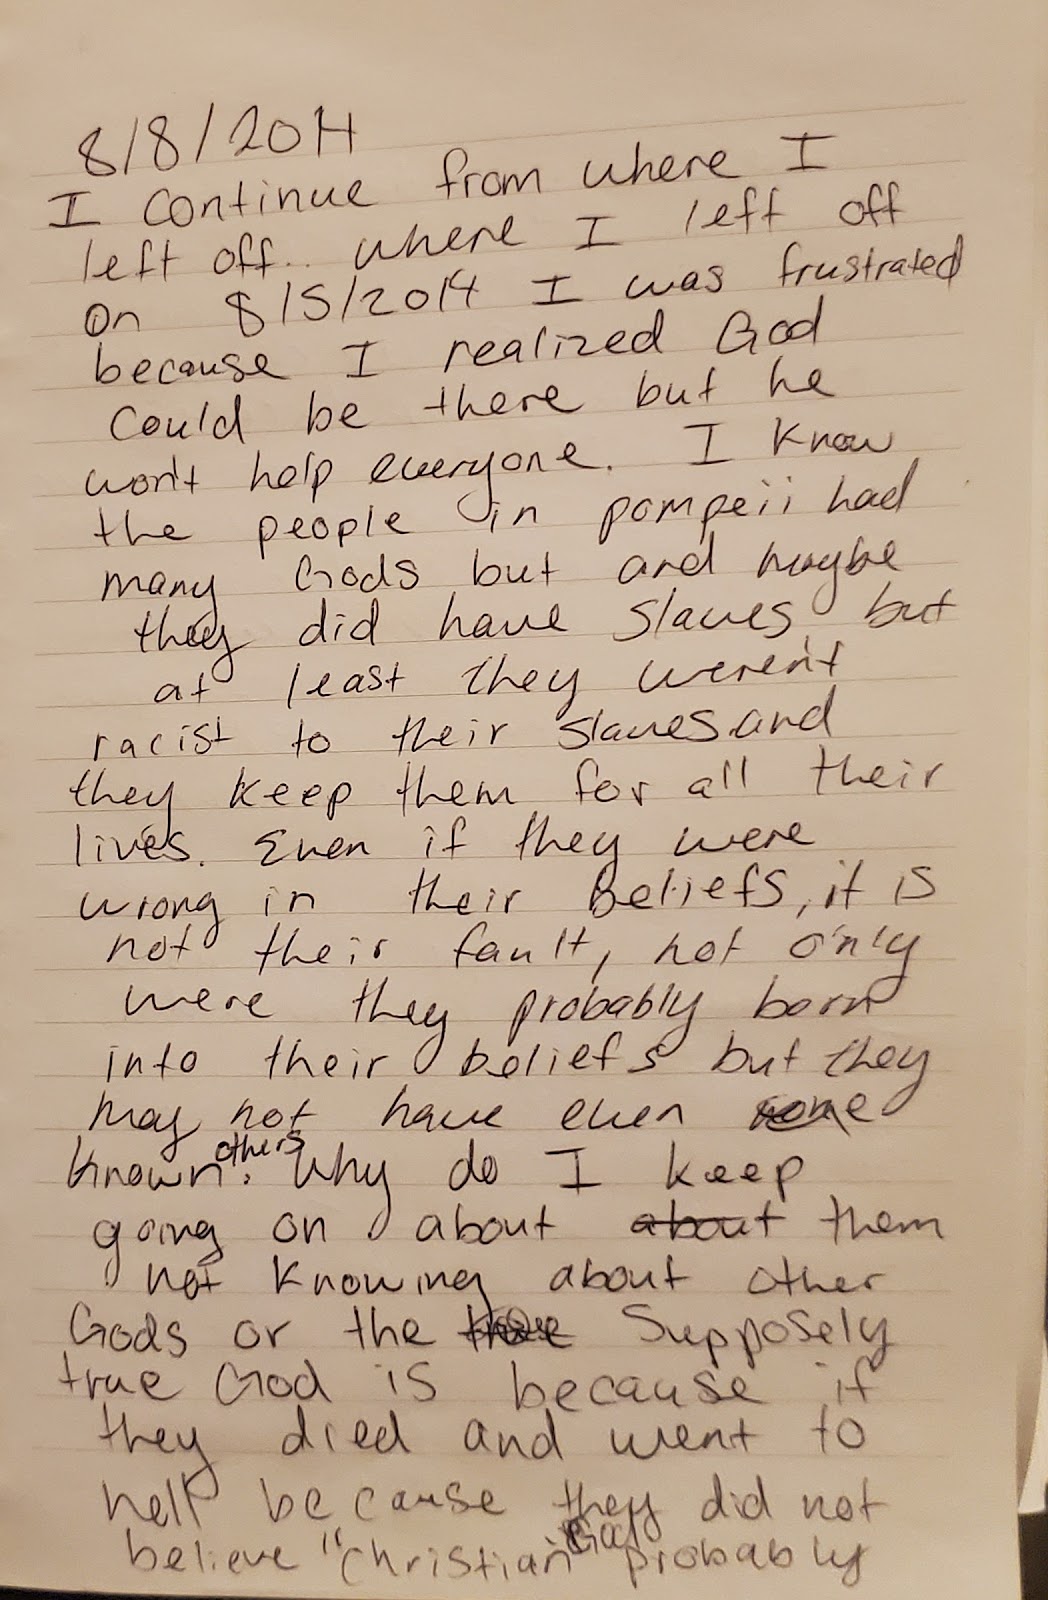 8/8/2014
I continue from where I
left off.. where I left off
on 8/5/2014 I was frustrated
because I realized God
could be there but he
won't help everyone. I know
the people in pompeii had
many Gods but and maybe
they did have slaves, but
at least they weren't
racist to their slaves and
they keep them for all their
lives. Even if they were
wrong in their beliefs, it is
not their fault, not only
were they probably born
into their beliefs but they
may not have even
known others. Why do I keep
going on about about them
not knowing about other
Gods or the supposely
true God is because if
they died and went to
hell because they did not
believe "Christian" God probably